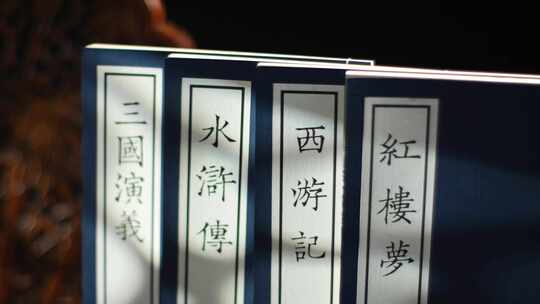 三國演義
水滸傳
西游記
紅樓夢